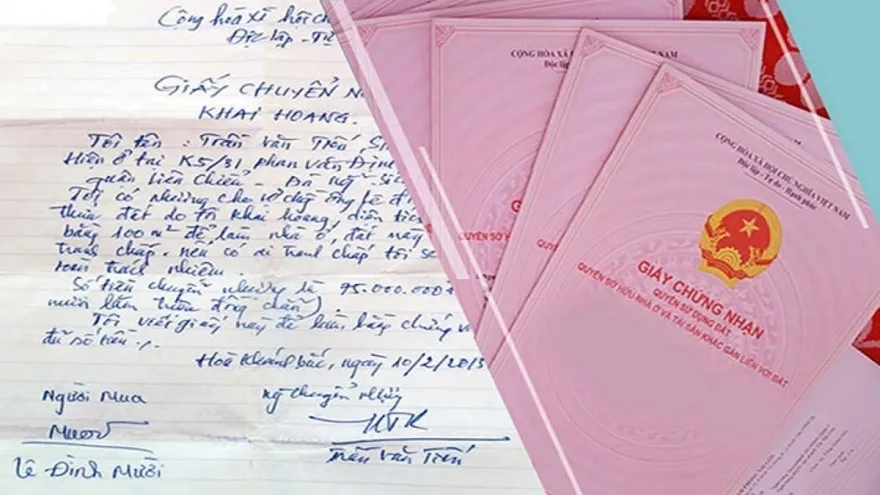 Cộng hòa xã hội ch
Độc lập - Tự
GIẤY CHUYỂN N
KHAI HOANG.
Tôi tên : Trần Văn Tiến, Si
Hiện ở tại K5/31 phan Văn Định
quận Liên Chiểu - Đà nẵng
Tôi có nhường cho vợ chồng ông
thửa đất do tôi khai hoang, diện tích
bằng 100 m² để làm nhà ở, đất này
tranh chấp. nếu có ai tranh chấp tôi
toàn trách nhiệm.
Số tiền chuyển nhường là 75.000.000
mươi lăm triệu đồng chẵn)
Tôi viết giấy này để làm bằng chứng
đủ số tiền.
Hoà Khánh bắc, ngày 10/2/2013
Người Mua
chuyển nhường
Mười
Lê Đình Mười
Trần Văn Tiến
CỘNG HÒA XÃ
NAM
Độc lập
CỘNG HÒA XÃ HỘI CHỦ NGHĨA VIỆT NAM
Độc lập - Tự do - Hạnh phúc
QUYỀN SỞ
QUYỀN SỞ HỮU
GIẤY CHỨNG NHẬN
QUYỀN SỬ DỤNG ĐẤT
QUYỀN SỞ HỮU NHÀ Ở VÀ TÀI SẢN KHÁC GẮN LIỀN VỚI ĐẤT